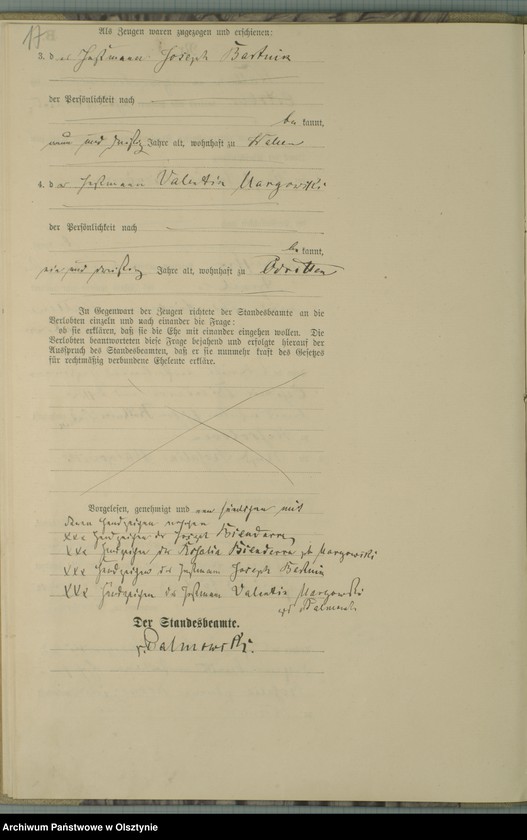 17
Als Zeugen waren zugezogen und erschienen:
3. der Instmann Joseph Bastnin
der Persönlichkeit nach
be kannt,
neun und dreißig Jahre alt, wohnhaft zu
4. der Instmann Valentin Margowski
der Persönlichkeit nach
be kannt,
ein und dreißig Jahre alt, wohnhaft zu Odritten
In Gegenwart der Zeugen richtete der Standesbeamte an die
Verlobten einzeln und nach einander die Frage:
ob sie erklären, daß sie die Ehe mit einander eingehen wollen. Die
Verlobten beantworteten diese Frage bejahend und erfolgte hierauf der
Ausspruch des Standesbeamten, daß er sie nunmehr kraft des Gesetzes
für rechtmäßig verbundene Eheleute erkläre.
Vorgelesen, genehmigt und von sämtlichen mit
ihren Handzeichen versehen
XXX Handzeichen des Joseph Bienderra
XXX Handzeichen der Rosalia Bienderra geb Margowski
XXX Handzeichen des Instmann Joseph Bastnin
XXX Handzeichen des Instmann Valentin Margowski
Der Standesbeamte.
v. Palmowski.
Archiwum Państwowe w Olsztynie